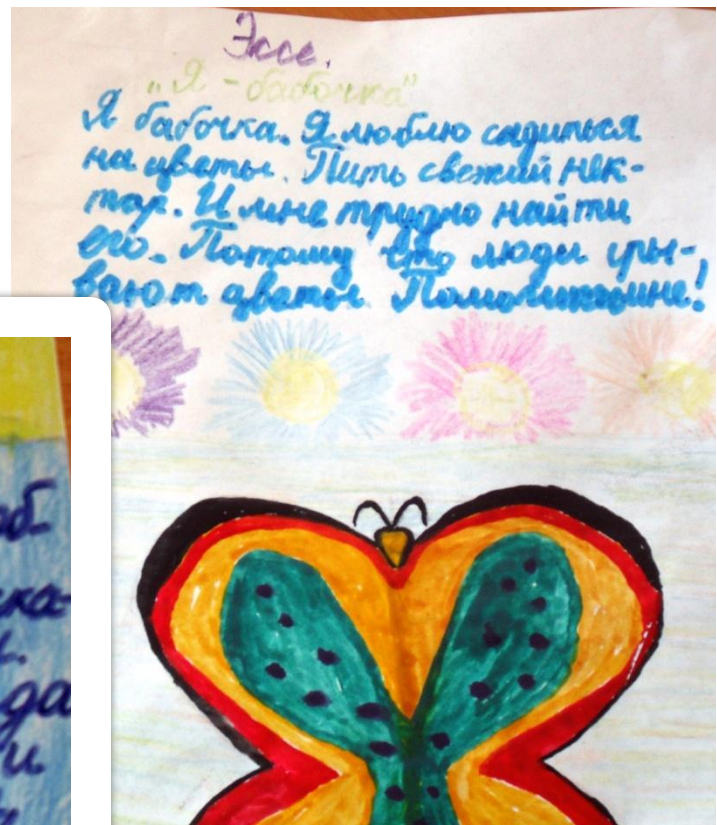 Эссе.
„Я - бабочка”
Я бабочка. Я люблю садиться
на цветы. Пить свежий нек-
тар. И мне трудно найти
его. Потому что люди сры-
вают цветы
об-
ка-
да
и